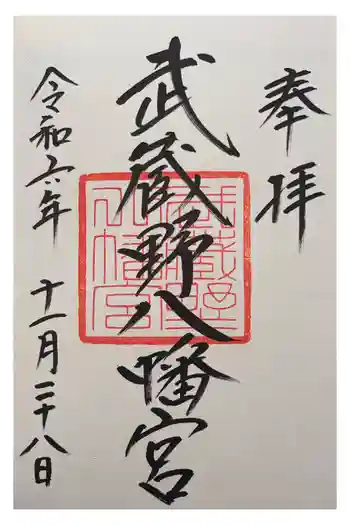 奉拝
武蔵野八幡宮
武蔵野
八幡宮
令和六年 十一月二十八日